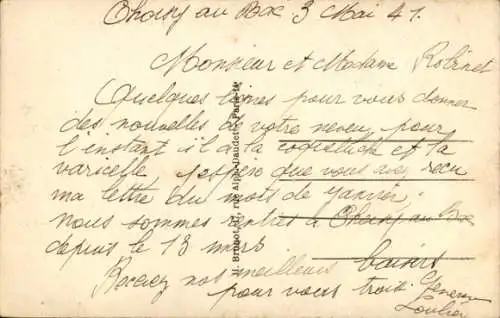 Choisy au Bac 3 Mai 41.
Monsieur et Madame Robinet
Quelques lignes pour vous donner
des nouvelles de votre neveu, pour
l'instant il a la coqueluche et la
varicelle, j'espère que vous avez recu
ma lettre du mois de Janvier,
nous sommes rentrés à Choisy au Bac
depuis le 13 mars
Recevez nos meilleurs baisers
pour vous trois.